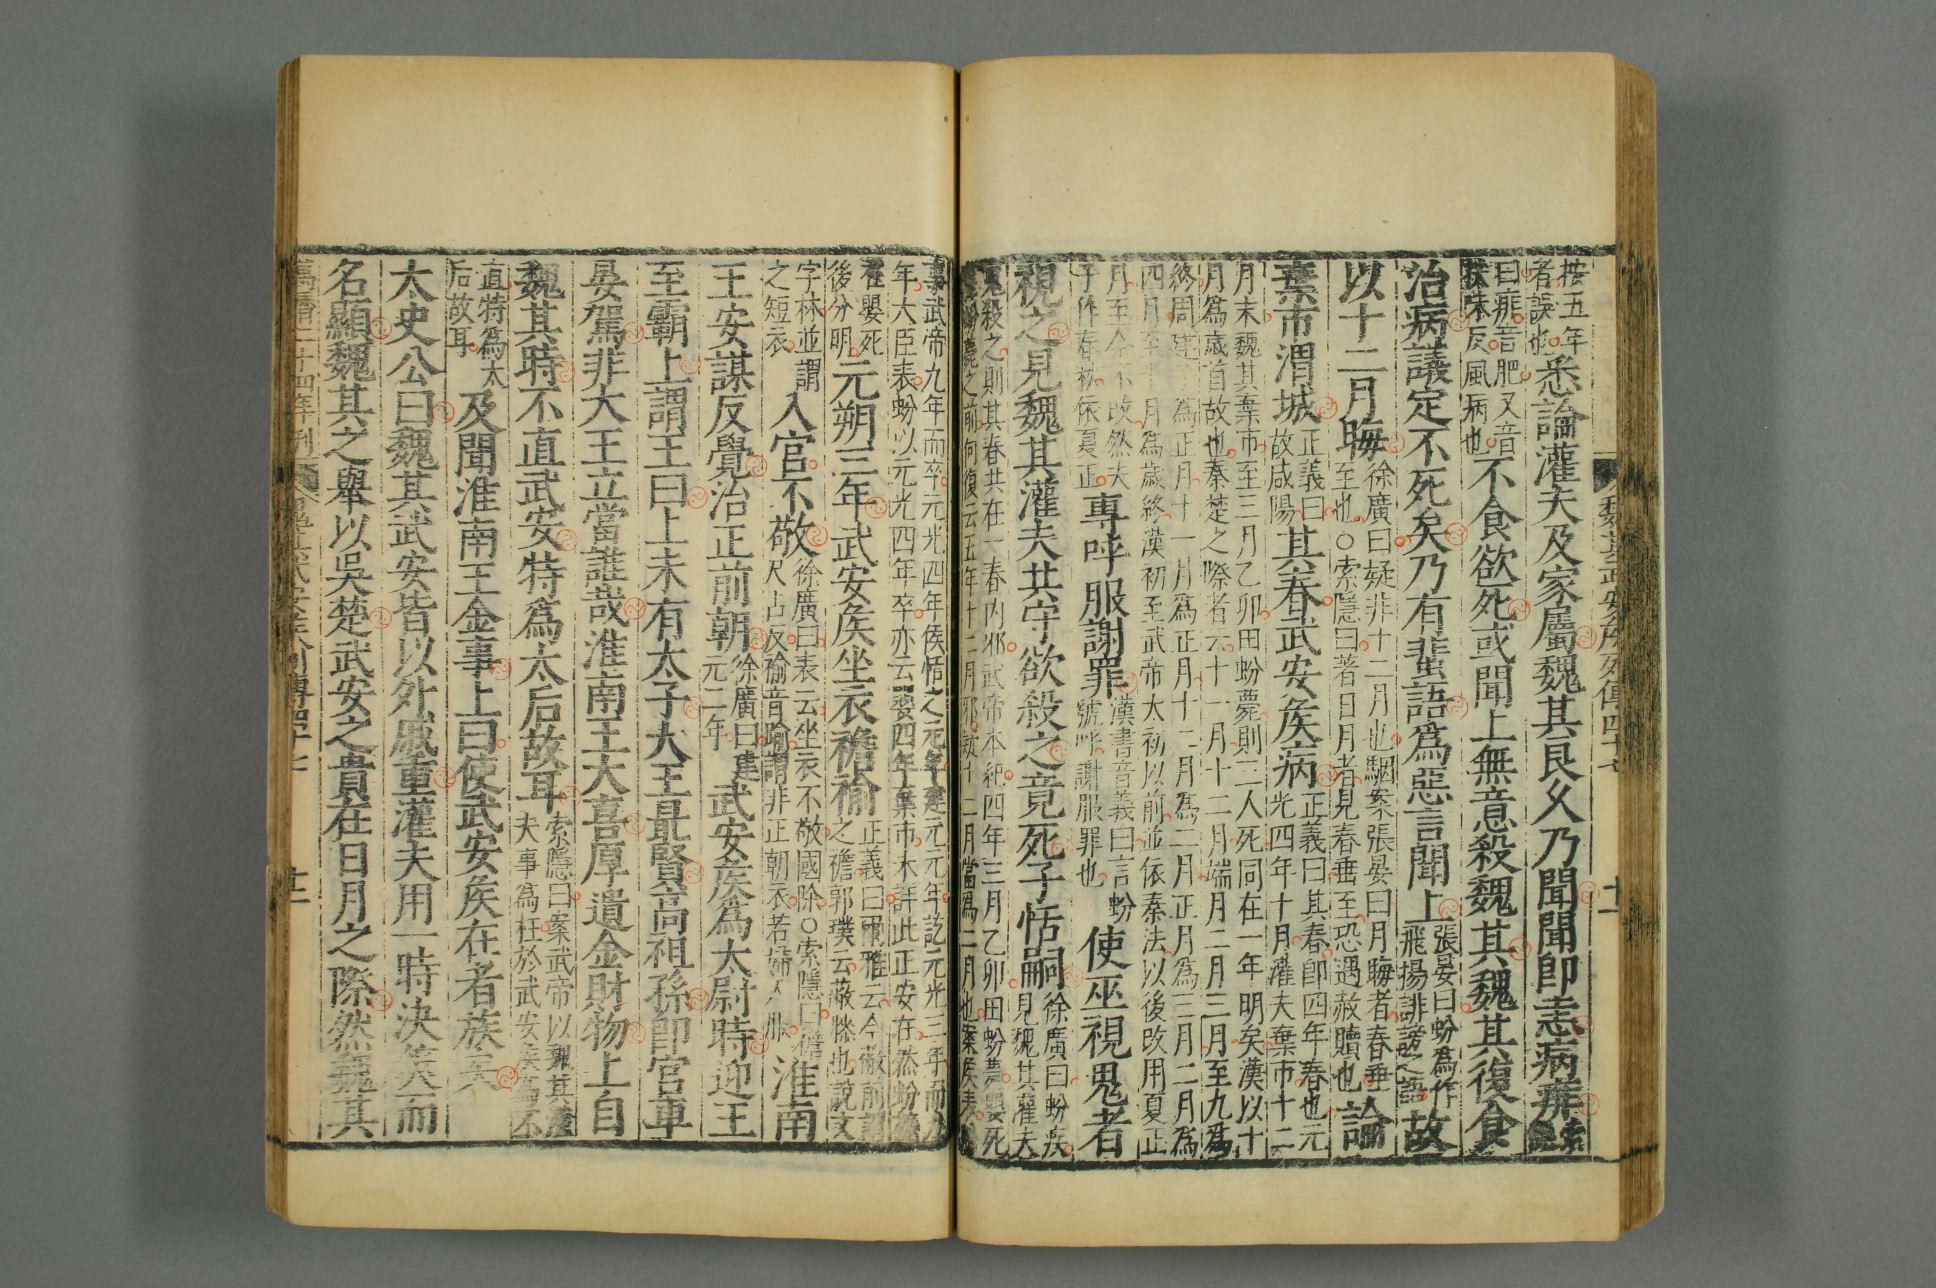 魏其武安矦列傳四十七 十一
按五年者誤也悉論灌夫及家屬魏其良久乃聞聞即恚病痱索隱
曰痱音肥又音扶味反風病也不食欲死或聞上無意殺魏其魏其復食
治病議定不死矣乃有蜚語爲惡言聞上張晏曰蚡爲作飛揚誹謗之語故
以十二月晦徐廣曰疑非十二月也駰案張晏曰月晦者春垂至也○索隱曰著日月者見春垂至恐遇赦贖也論
棄市渭城正義曰故咸陽其春武安矦病正義曰其春即四年春也元光四年十月灌夫棄市十二
月末魏其棄市至三月乙卯田蚡薨則三人死同在一年明矣漢以十月爲歲首故也秦楚之際者云十一月十二月端月二月三月至九爲
終周建子爲正月十一月爲正月十二月爲二月正月爲三月二月爲四月至十月爲歲終漢初至武帝太初以前並依秦法以後改用夏正
月至今不改然夫子作春秋依夏正專呼服謝罪漢書音義曰言蚡號呼謝服罪也使巫視鬼者
視之見魏其灌夫共守欲殺之竟死子恬嗣徐廣曰蚡疾見魏其灌夫
鬼殺之則其春共在一春内邪武帝本紀四年三月乙卯田蚡薨嬰死在蚡薨之前何復云五年十二月邪疑十二月當爲二月也案矦表蚡
事武帝九年而卒元光四年侯恬之元年建元元年訖元光三年而九年大臣表蚡以元光四年卒亦云嬰四年棄市未詳此正安在然蚡薨
在嬰死後分明元朔三年武安矦坐衣襜褕正義曰爾雅云今蔽前謂之襜郭璞云蔽膝也說文
字林並謂之短衣入宮不敬徐廣曰表云坐衣不敬國除○索隱曰襜尺占反褕音踰謂非正朝衣若婦人服淮南
王安謀反覺治正前朝徐廣曰建元二年武安矦爲太尉時迎王
至霸上謂王曰上未有太子大王最賢高祖孫即宮車
晏駕非大王立當誰哉淮南王大喜厚遺金財物上自
魏其時不直武安特爲太后故耳索隱曰案武帝以魏其灌夫事爲枉於武安矦爲不
直特爲太后故耳及聞淮南王金事上曰使武安矦在者族矣
太史公曰魏其武安皆以外戚重灌夫用一時決筴而
名顯魏其之舉以吳楚武安之貴在日月之際然魏其
萬曆二十四年刊 魏其武安矦列傳四十七 十一